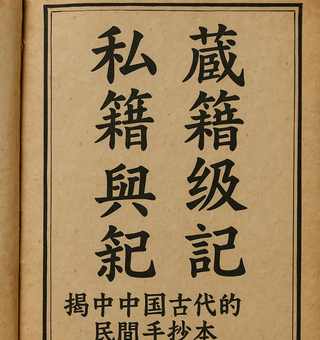 蔵籍级記
私籍與
揭中中国古代的
民間手抄本